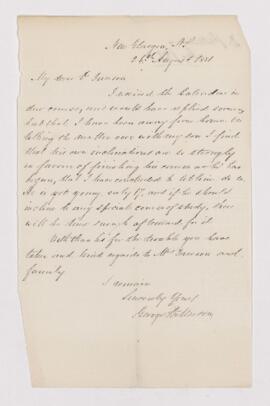 New Glasgow, N.S.
26th August 1881
My dear Dr
I received the Calendar in
due course, and would have replied sooner,
but that I have been away from home. In
talking the matter over with my son I find
that his own inclinations are so strongly
in favour of finishing his course as he has
begun, that I have concluded to let him do so.
He is yet young only 17, and if he should
incline to any special course of study, there
will be time enough afterward for it.
With thanks for the trouble you have
taken and kind regards to Mrs and
family
I remain
Sincerely Yours
George